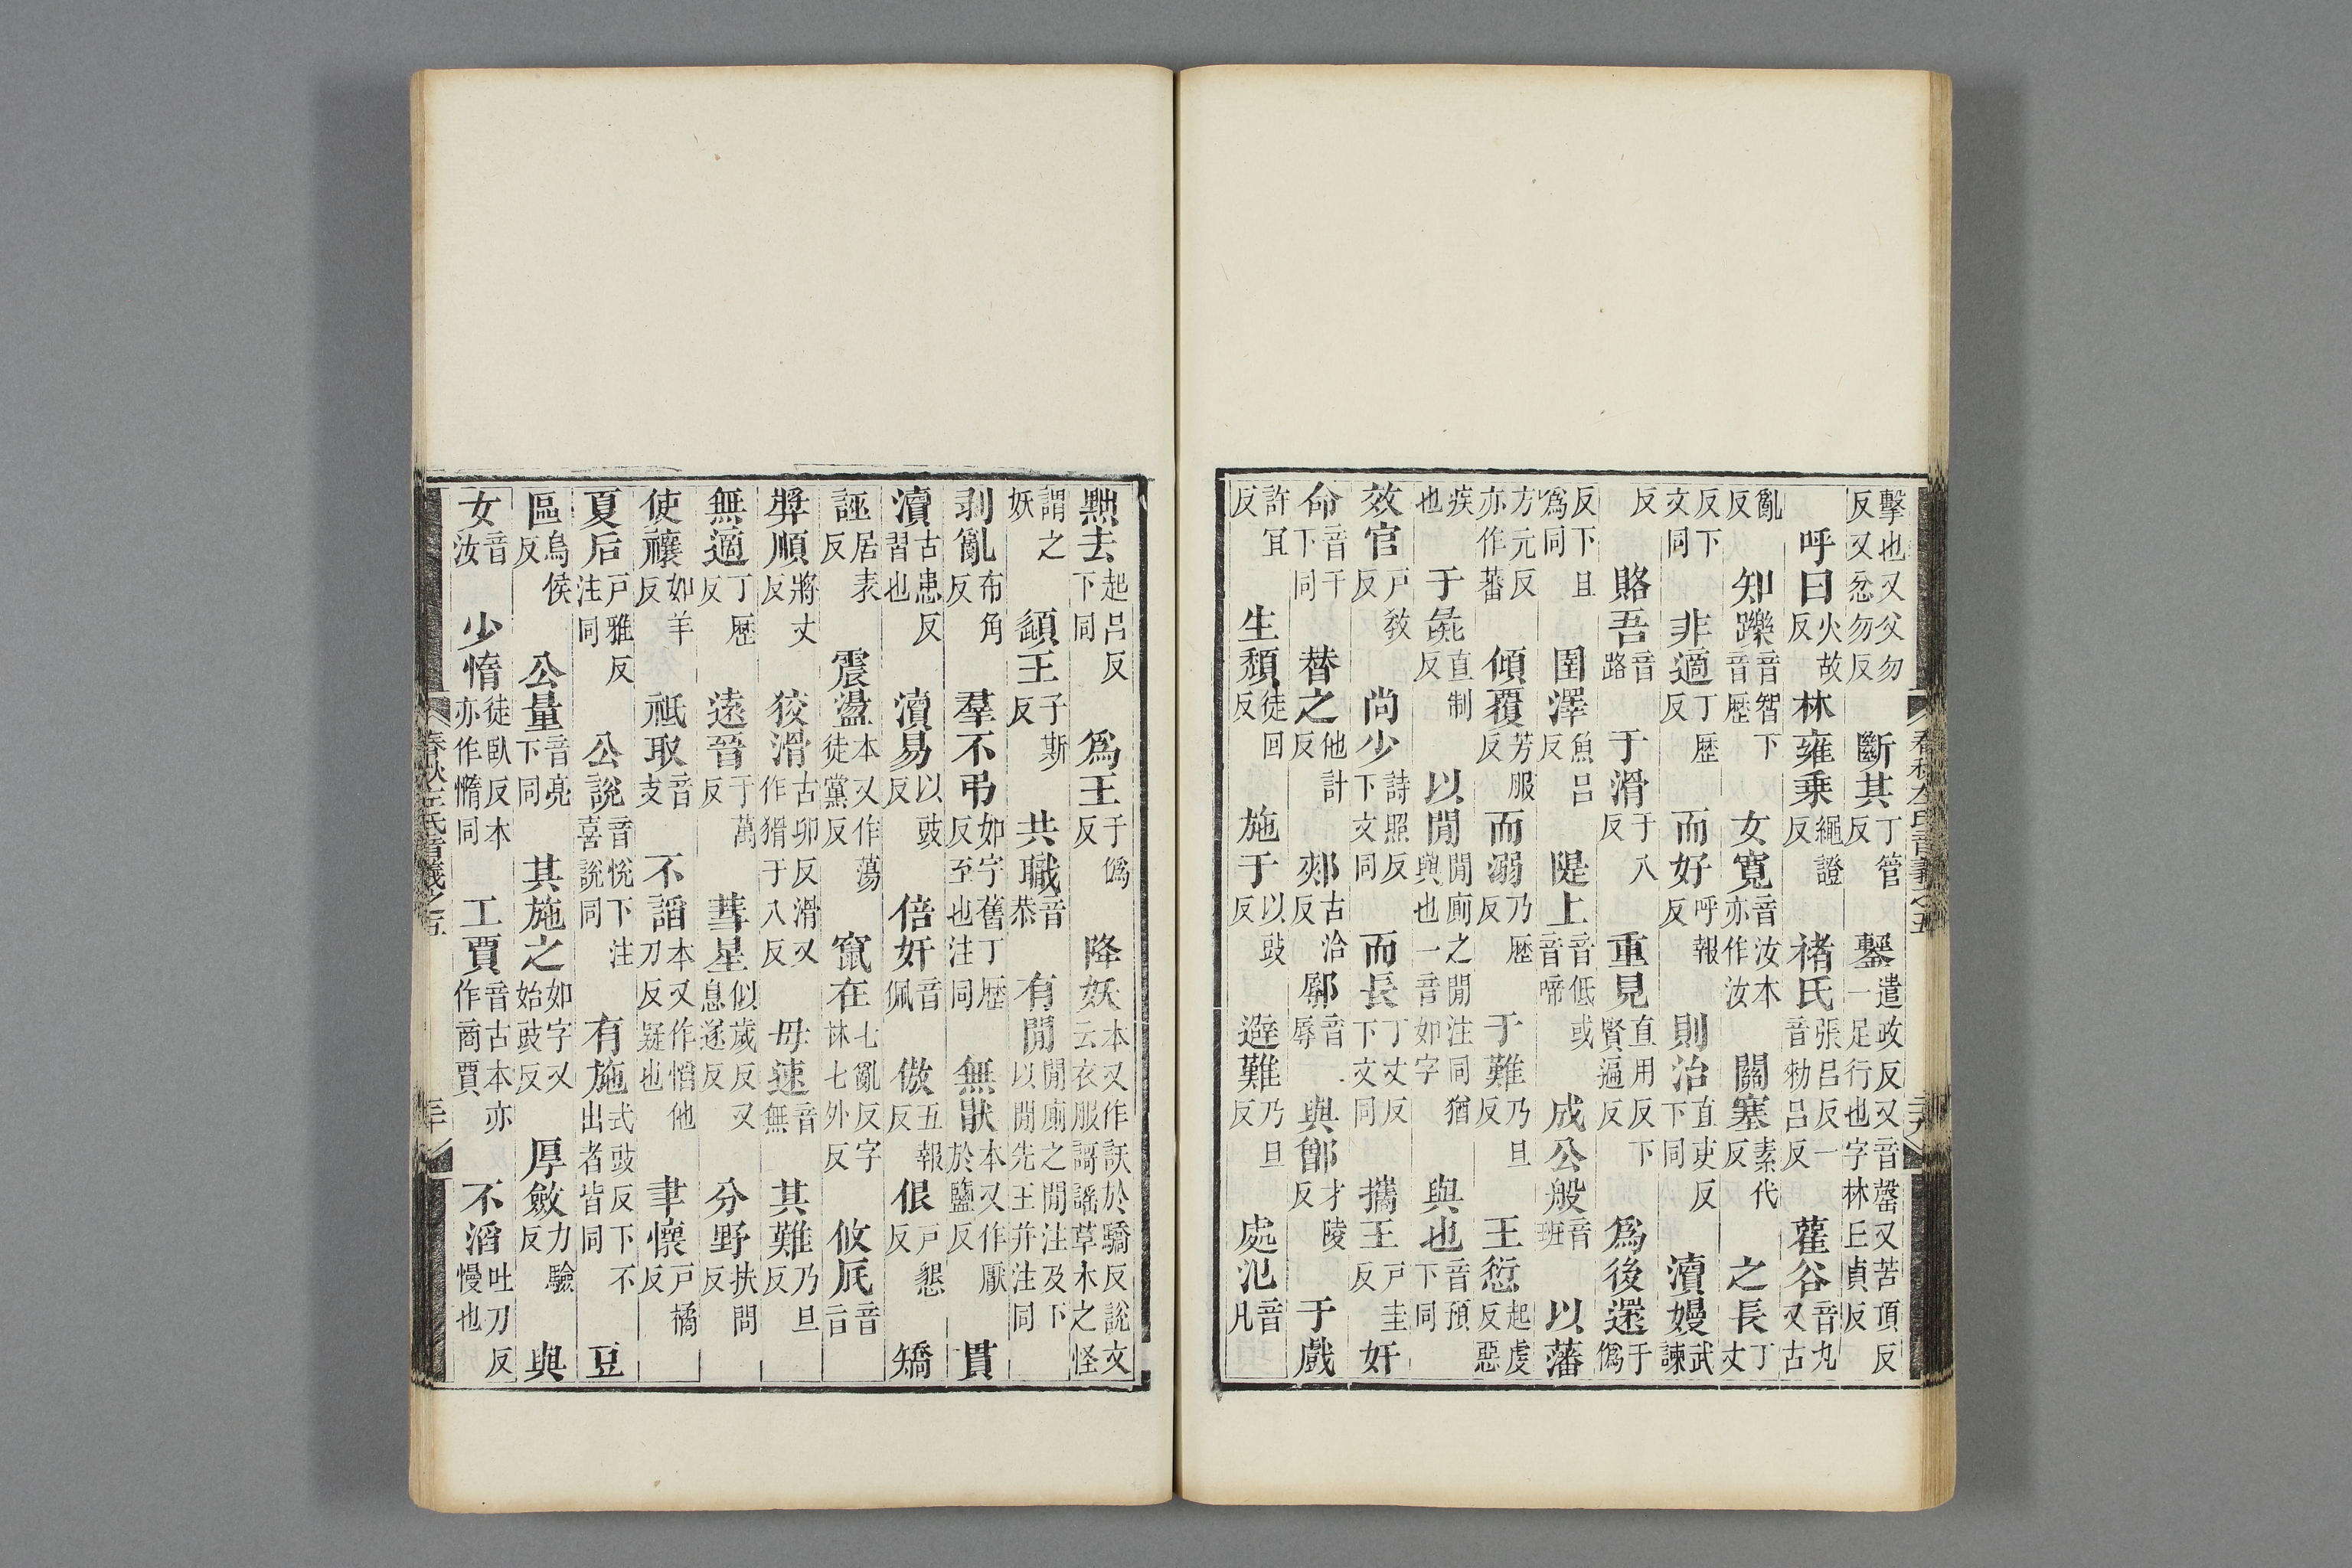 擊也又父勿反又忿勿反 斷其丁管反 鑋遣政反又音罄又苦頂反一足行也字林丘貞反
呼曰火故反 林雍乘繩證反 褚氏張呂反一音勑呂反 萑谷音丸又古
亂反 知躒音智下音歷 女寬音汝本亦作汝 關塞素代反 之長丁丈
反下文同 非適丁歷反 而好呼報反 則治直吏反下同 瀆嫚武諫
反 賂吾音路 于滑于八反 重見直用反下賢遍反 爲後還于僞
反下且爲同 圉澤魚呂反 隄上音低或音啼 成公般音班 以藩
方元反亦作蕃 傾覆芳服反 而溺乃歷反 于難乃旦反 王愆起虔反惡
疾也 于彘直制反 以閒閒廁之閒注同猶與也一音如字 與也音預下同
效官戶教反 尚少詩照反下文同 而長丁丈反下文同 攜王戶圭反 奸
命音干下同 替之他計反 郟古洽反 鄏音辱 與鄫才陵反 于戲
許宜反 生頹徒回反 施于以豉反 避難乃旦反 處氾音凡
春秋左氏音義之五 二十九
黜去起呂反下同 爲王于僞反 降妖本又作訞於驕反說文云衣服謌謠草木之怪
謂之妖 頿王子斯反 共職音恭 有閒閒廁之閒注及下以閒先王并注同
剥亂布角反 羣不弔如字舊丁歷反至也注同 無猒本又作厭於鹽反 貫
瀆古患反習也 瀆易以豉反 倍奸音佩 傲五報反 佷戶懇反 矯
誣居表反 震盪本又作蕩徒黨反 竄在七亂反字林七外反 攸厎音旨
奬順將丈反 狡滑古卯反滑又作猾于八反 毋速音無 其難乃旦反
無適丁歷反 遠晉于萬反 彗星似歲反又息遂反 分野扶問反
使禳如羊反 祗取音支 不謟本又作慆他刀反疑也 聿懷戶橘反
夏后戶雅反注同 公說音悅下注喜說同 有施式豉反下不出者皆同 豆
區烏侯反 公量音亮下同 其施之如字又始豉反 厚斂力驗反 與
女音汝 少惰徒臥反本亦作憜同 工賈音古本亦作商賈 不滔吐刀反慢也
春秋左氏音義之五 三十